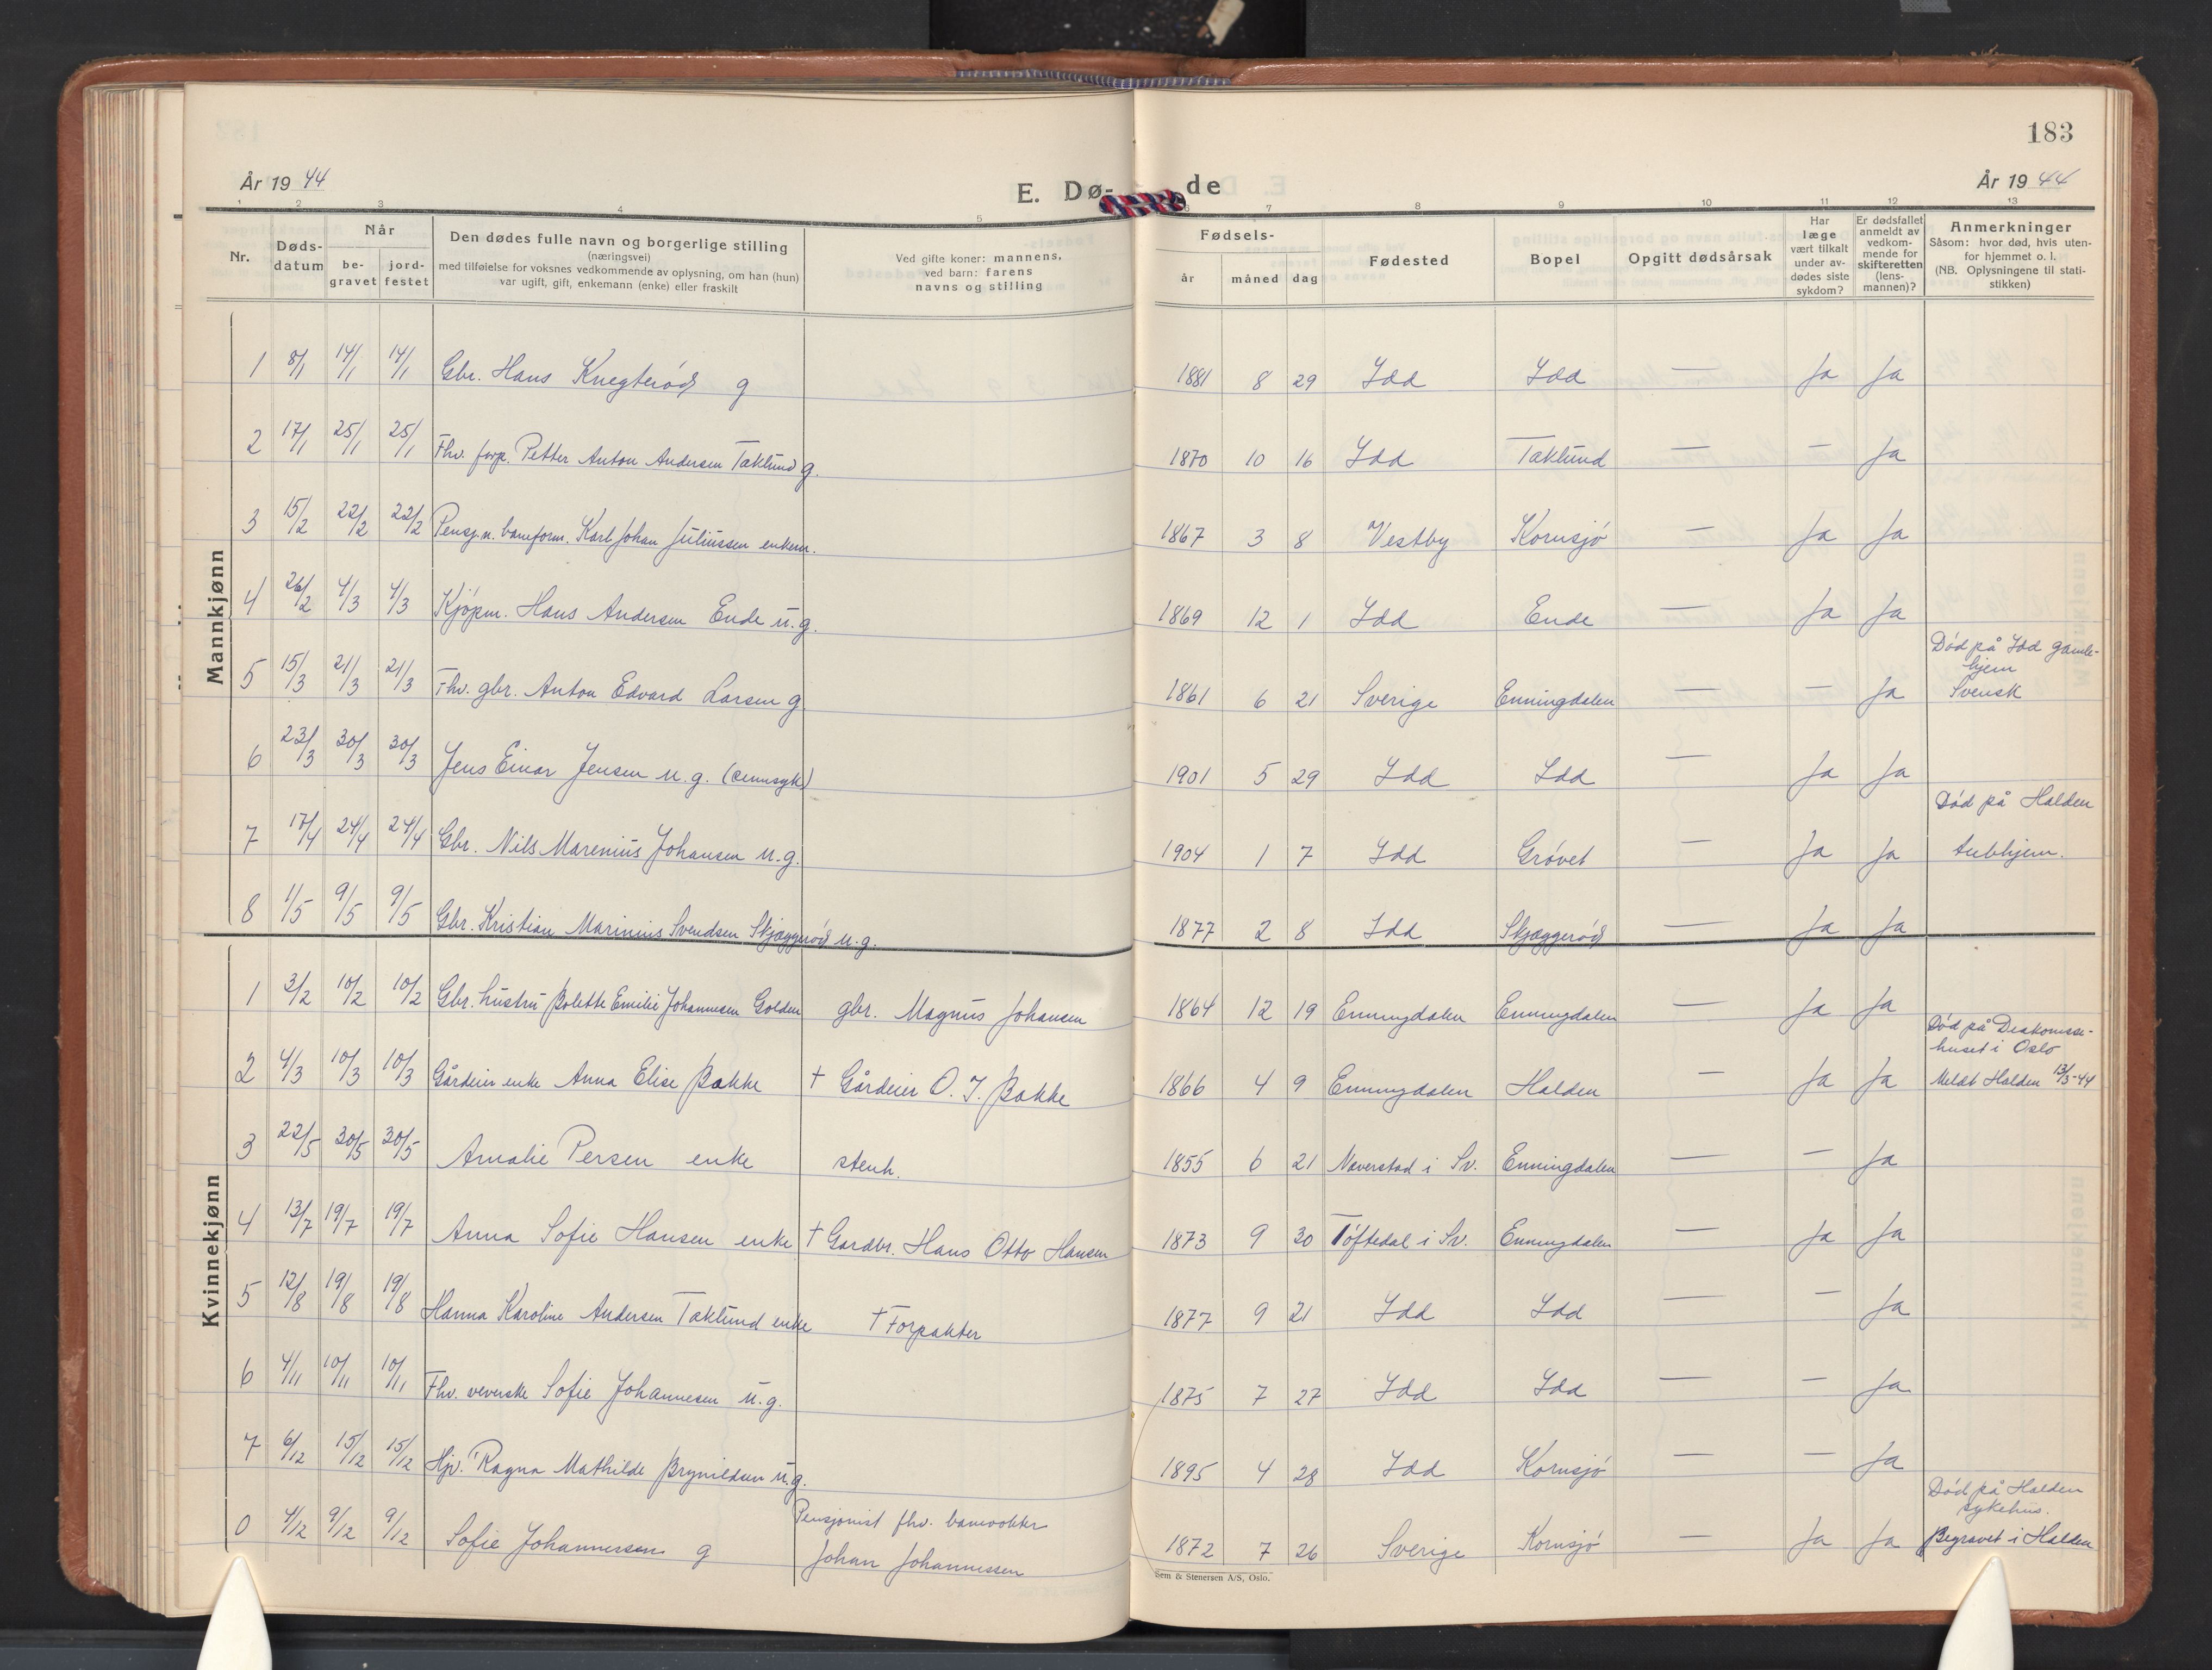 183
År 1944
E. Dø-
de
År 1944
1 2 3 4 5 6 7 8 9 10 11 12 13
Nr.
Døds-
datum
Når
be-
gravet
jord-
festet
Den dødes fulle navn og borgerlige stilling
(næringsvei)
med tilføielse for voksnes vedkommende av oplysning, om han (hun)
var ugift, gift, enkemann (enke) eller fraskilt
Ved gifte koner: mannens,
ved barn: farens
navns og stilling
Fødsels-
år
måned
dag
Fødested
Bopel
Opgitt dødsårsak
Har
læge
vært tilkalt
under av-
dødes siste
sykdom?
Er dødsfallet
anmeldt av
vedkom-
mende for
skifteretten
(lens-
mannen)?
Anmerkninger
Såsom: hvor død, hvis uten-
for hjemmet o. l.
(NB. Oplysningene til stati-
stikken)
Mannkjønn
1 8/1 14/1 14/1 Gbr. Hans Knegterød g 1881 8 29 Idd Idd — Ja Ja
2 17/1 25/1 25/1 Fhv. forp. Petter Anton Andersen Taklund g. 1870 10 16 Idd Taklund — — Ja
3 15/2 22/2 22/2 Pensj.n. baneform. Karl Johan Juliussen enkem. 1867 3 8 Vestby Kornsjø — Ja Ja
4 26/2 4/3 4/3 Kjøpm. Hans Andersen Ende u.g. 1869 12 1 Idd Ende — Ja Ja
5 15/3 21/3 21/3 Fhv. gbr. Anton Edvard Larsen g 1861 6 21 Sverige Enningdalen — — Ja
Død på Idd gamle-
hjem
Svensk
6 23/3 30/3 30/3 Jens Einar Jensen u.g. (sinnsyk) 1901 5 29 Idd Idd — Ja Ja
7 17/4 24/4 24/4 Gbr. Nils Marenius Johansen u.g. 1904 1 7 Idd Grøvet — Ja Ja
Død på Halden
tubhjem.
8 1/5 9/5 9/5 Gbr. Kristian Marinius Svendsen Skjæggerød u.g. 1877 2 8 Idd Skjæggerød — Ja Ja
Kvinnekjønn
1 3/2 10/2 10/2 Gbr. hustru Bolette Emilie Johannesen Golden gbr. Magnus Johansen 1864 12 19 Enningdalen Enningdalen — Ja Ja
2 4/3 10/3 10/3 Gårdeier enke Anna Elise Bakke † Gårdeier O. J. Bakke 1866 4 9 Enningdalen Halden — Ja Ja
Død på Diakonisse-
huset i Oslo
Meldt Halden 13/3-44
3 22/5 30/5 30/5 Amalie Persen enke stenh. 1855 6 21 Naverstad i Sv. Enningdalen — — Ja
4 13/7 19/7 19/7 Anna Sofie Hansen enke † Gardbr. Hans Otto Hansen 1873 9 30 Töftedal i Sv. Enningdalen — Ja Ja
5 12/8 19/8 19/8 Hanna Karoline Andersen Taklund enke † Forpakter 1877 9 21 Idd Idd — — Ja
6 4/11 10/11 10/11 Fhv. veverske Sofie Johannesen u.g. 1875 7 27 Idd Idd — — Ja
7 6/12 15/12 15/12 Hjv. Ragna Mathilde Brynildsen u.g. 1895 4 28 Idd Kornsjø — — Ja
0 4/12 9/12 9/12 Sofie Johannessen g
Pensjonist fhv. banevokter
Johan Johannessen
1872 7 26 Sverige Kornsjø — Ja Ja
Død på Halden
sykehus.
Begravet i Halden
Sem & Stenersen A/S, Oslo.